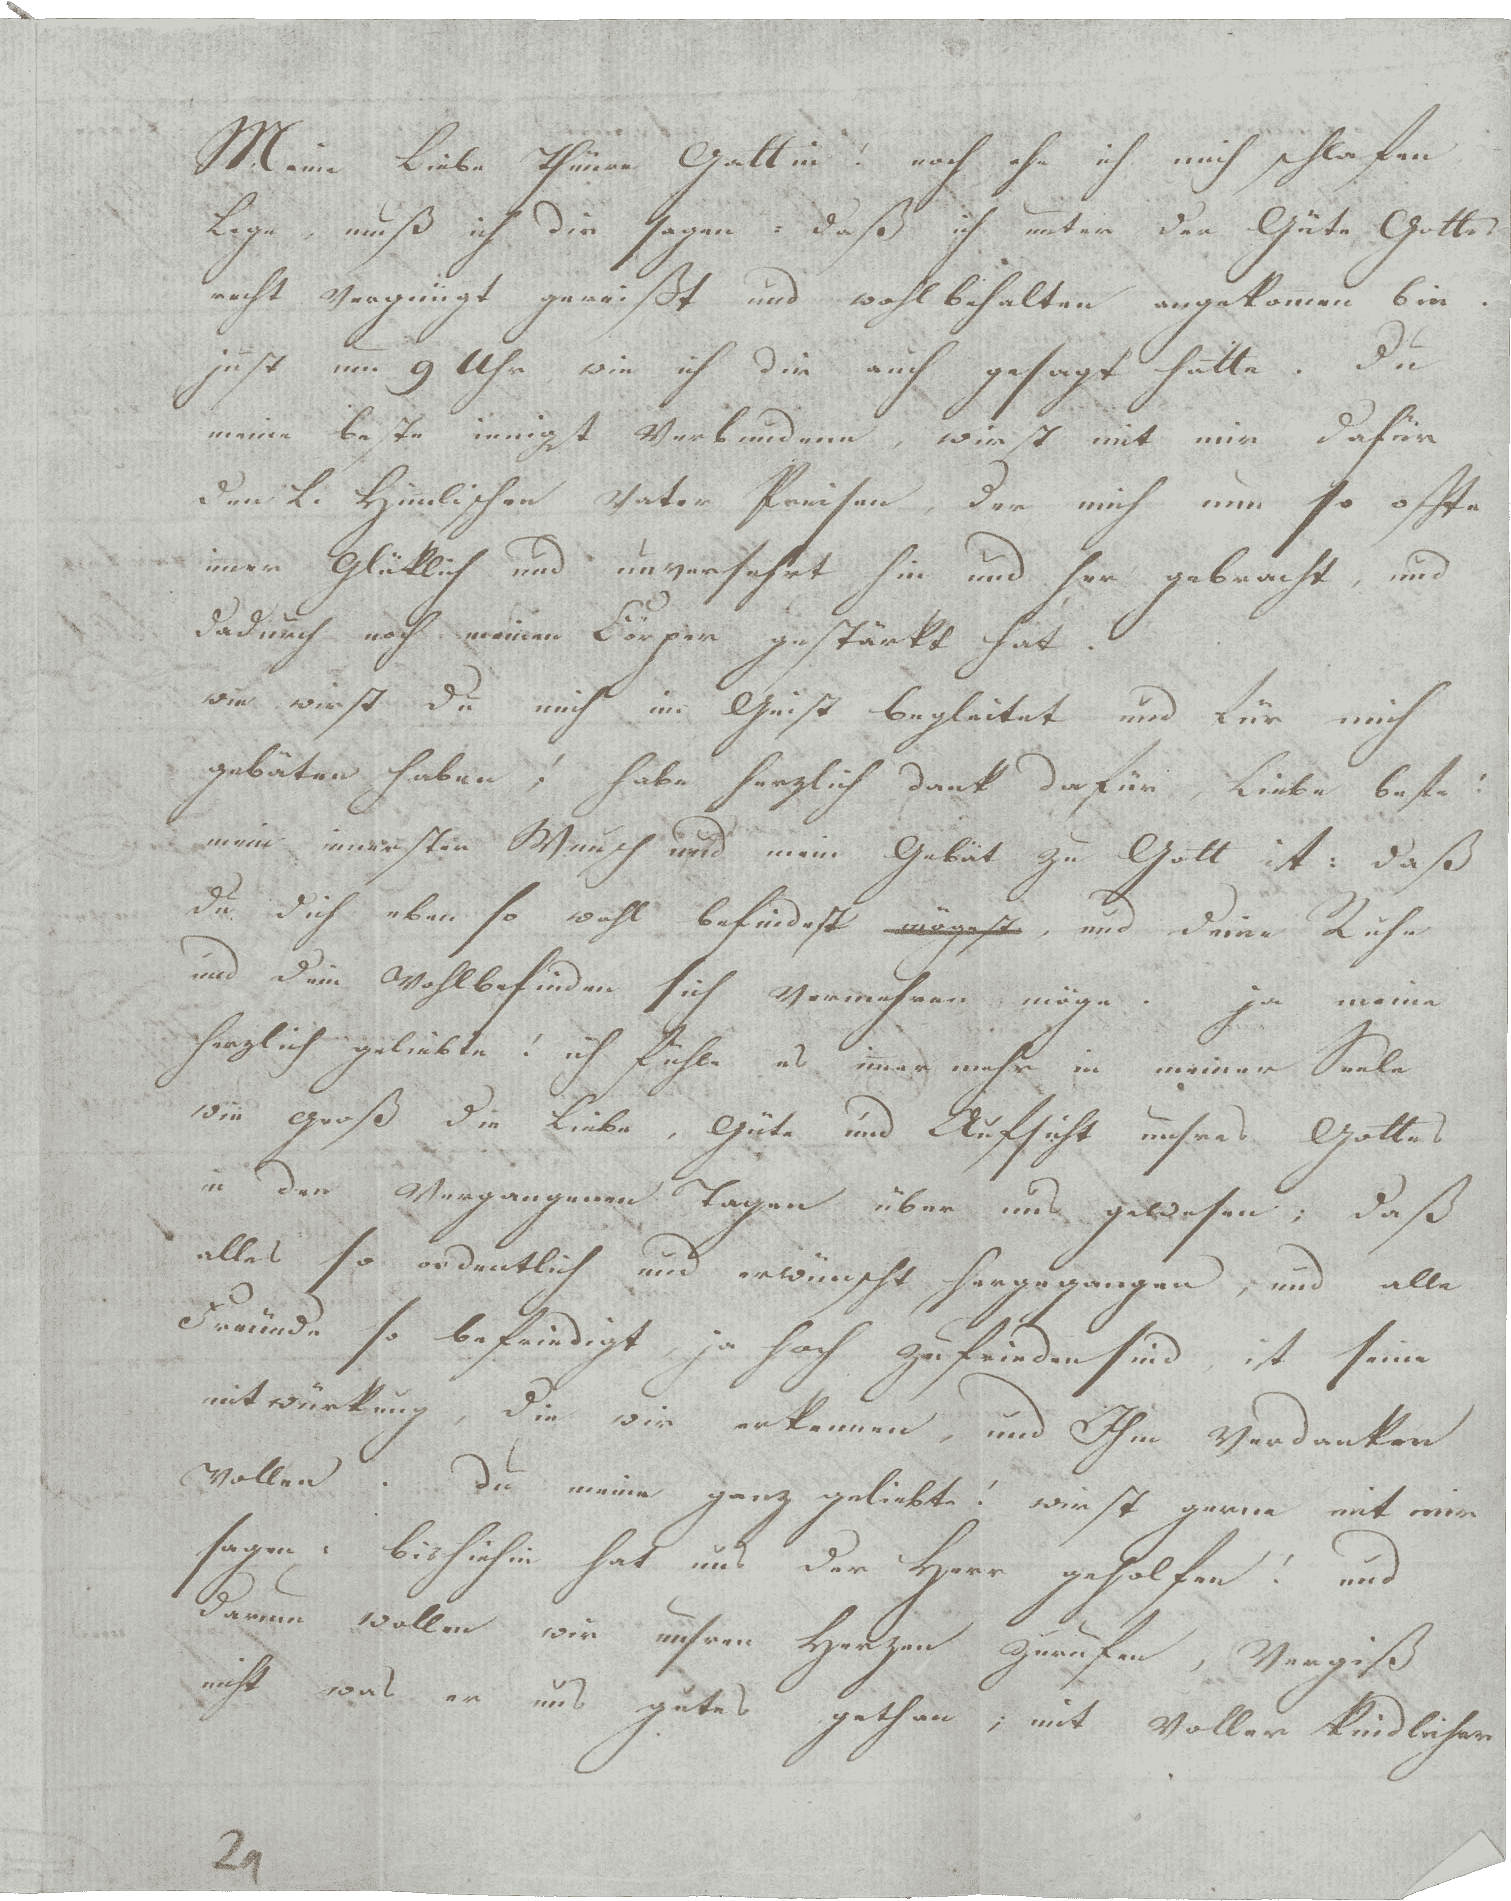 Meine Liebe Theüre Gattin! noch ehe ich mich schlafen
Lege, muß ich dir sagen: daß ich unter der Güte Gottes
recht vergnügt gereißt und wohlbehalten angekom̄en bin.
just um 9 Uhr wie ich dir auch gesagt hatte. Du
meine beste innigst Verbundene, wirst mit mir dafür
den L. Him̄lischen Vater Preisen, der mich nun so offte
im̄er Glüklich und unversehrt hin und her gebracht, und
dadurch noch meinen Cörper gestärkt hat.
wie wirst Du mich im Geist begleitet und für mich
gebäten haben! habe herzlich dank dafür, Liebe beste!
mein innerster Wunsch und mein Gebät zu Gott ist: daß
du dich eben so wohl befindest mögest, und deine Ruhe
und dein Wohlbefinden sich vermehren möge. ja meine
herzlich geliebte! ich fühle es im̄er mehr in meiner Seele
wie groß die Liebe, Güte und Aufsicht unsres Gottes
in den Vergangenen Tagen über uns gewesen; daß
alles so ordentlich und erwünscht hergegangen, und alle
Freünde so befriedigt, ja hoch zufrieden sind, ist seine
mitwürkung, die wir erkennen, und Ihm Verdanken
Wollen. Du meine ganz geliebte! wirst gerne mit mir
sagen: bishiehin hat uns der Herr geholfen! und
darum wollen wir unsren Herzen zurufen, Vergiß
nicht was er uns gutes gethan; mit Voller kindlicher
2a